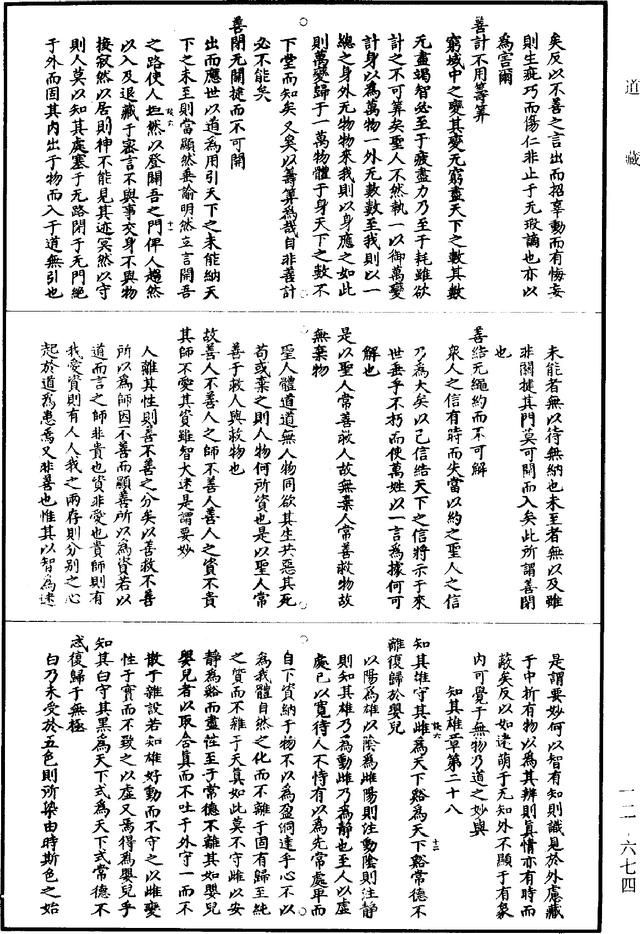 道藏
矣反以不善之言出而招辜動而有悔妄
則生疵巧而傷仁非止于无瑕謫也亦以
為害爾
善計不用籌筭
窮域中之變其變无窮盡天下之數其數
无盡竭智必至于疲盡力乃至于耗雖欲
計之不可筭矣聖人不然執一以御萬變
計身以為萬物一外无數數至我則以一
總之身外无物物來我則以身應之如此
則萬變歸于一萬物體于身天下之數不
下堂而知矣又奚以籌筭為哉自非善計
必不能矣
善閉无關揵而不可開
出而應世以道為用引天下之未能納天
下之未至則當顯然垂諭明然立言開吾
之路使人坦然以登闢吾之門俾人趨然
以入及退藏于密言不與事交身不與物
接寂然以居則神不能見其迹冥然以守
則人莫以知其處塞于无路閉于无門絕
于外而固其內出于物而入于道無引也
未能者無以待無納也未至者無以及雖
非關揵其門莫可開而入矣此所謂善閉
也
善結无繩約而不可解
衆人之信有時而失當以約之聖人之信
乃為大矣以己信結天下之信將示于來
世垂乎不朽而使萬姓以一言為據何可
解也
是以聖人常善救人故無棄人常善救物故
無棄物
聖人體道道無人物同欲其生共惡其死
苟或棄之則人物何所資也是以聖人常
善于救人與救物也
故善人不善人之師不善人善人之資不貴
其師不愛其資雖智大迷是謂要妙
人離其性則善不善之分矣以善救不善
所以為師因不善而顯善所以為資若以
道而言之師非貴也資非愛也貴師則有
我愛資則有人人我之兩存則分別之心
起於道為患焉又非善也惟其以智為迷
是謂要妙何以智有知則識見於外慮藏
于中析有物以為其辨則眞情亦有時而
蔽矣反以如迷萌于无知外不顯于有象
內可覺于無物乃道之妙與
知其雄章第二十八
知其雄守其雌為天下谿為天下谿常德不
離復歸於嬰兒
以陽為雄以陰為雌陽則注動陰則注靜
則知其雄乃為動雌乃為靜也至人以虛
處己以寬待人不恃有以為先常處卑而
自下資納于物不以為盈侗達乎心不以
為我體自然之化而不離于固有歸至純
之質而不雜于天真如此莫不守雌以安
靜為谿而盡性至于常德不離其如嬰兒
嬰兒者以取含真而不吐于外守一而不
散于雜設若知雄好動而不守之以雌變
性于實而不致之以虛又焉得為嬰兒乎
知其白守其黑為天下式為天下式常德不
忒復歸于無極
白乃未受於五色則所染由時斯色之始
一二-六七四